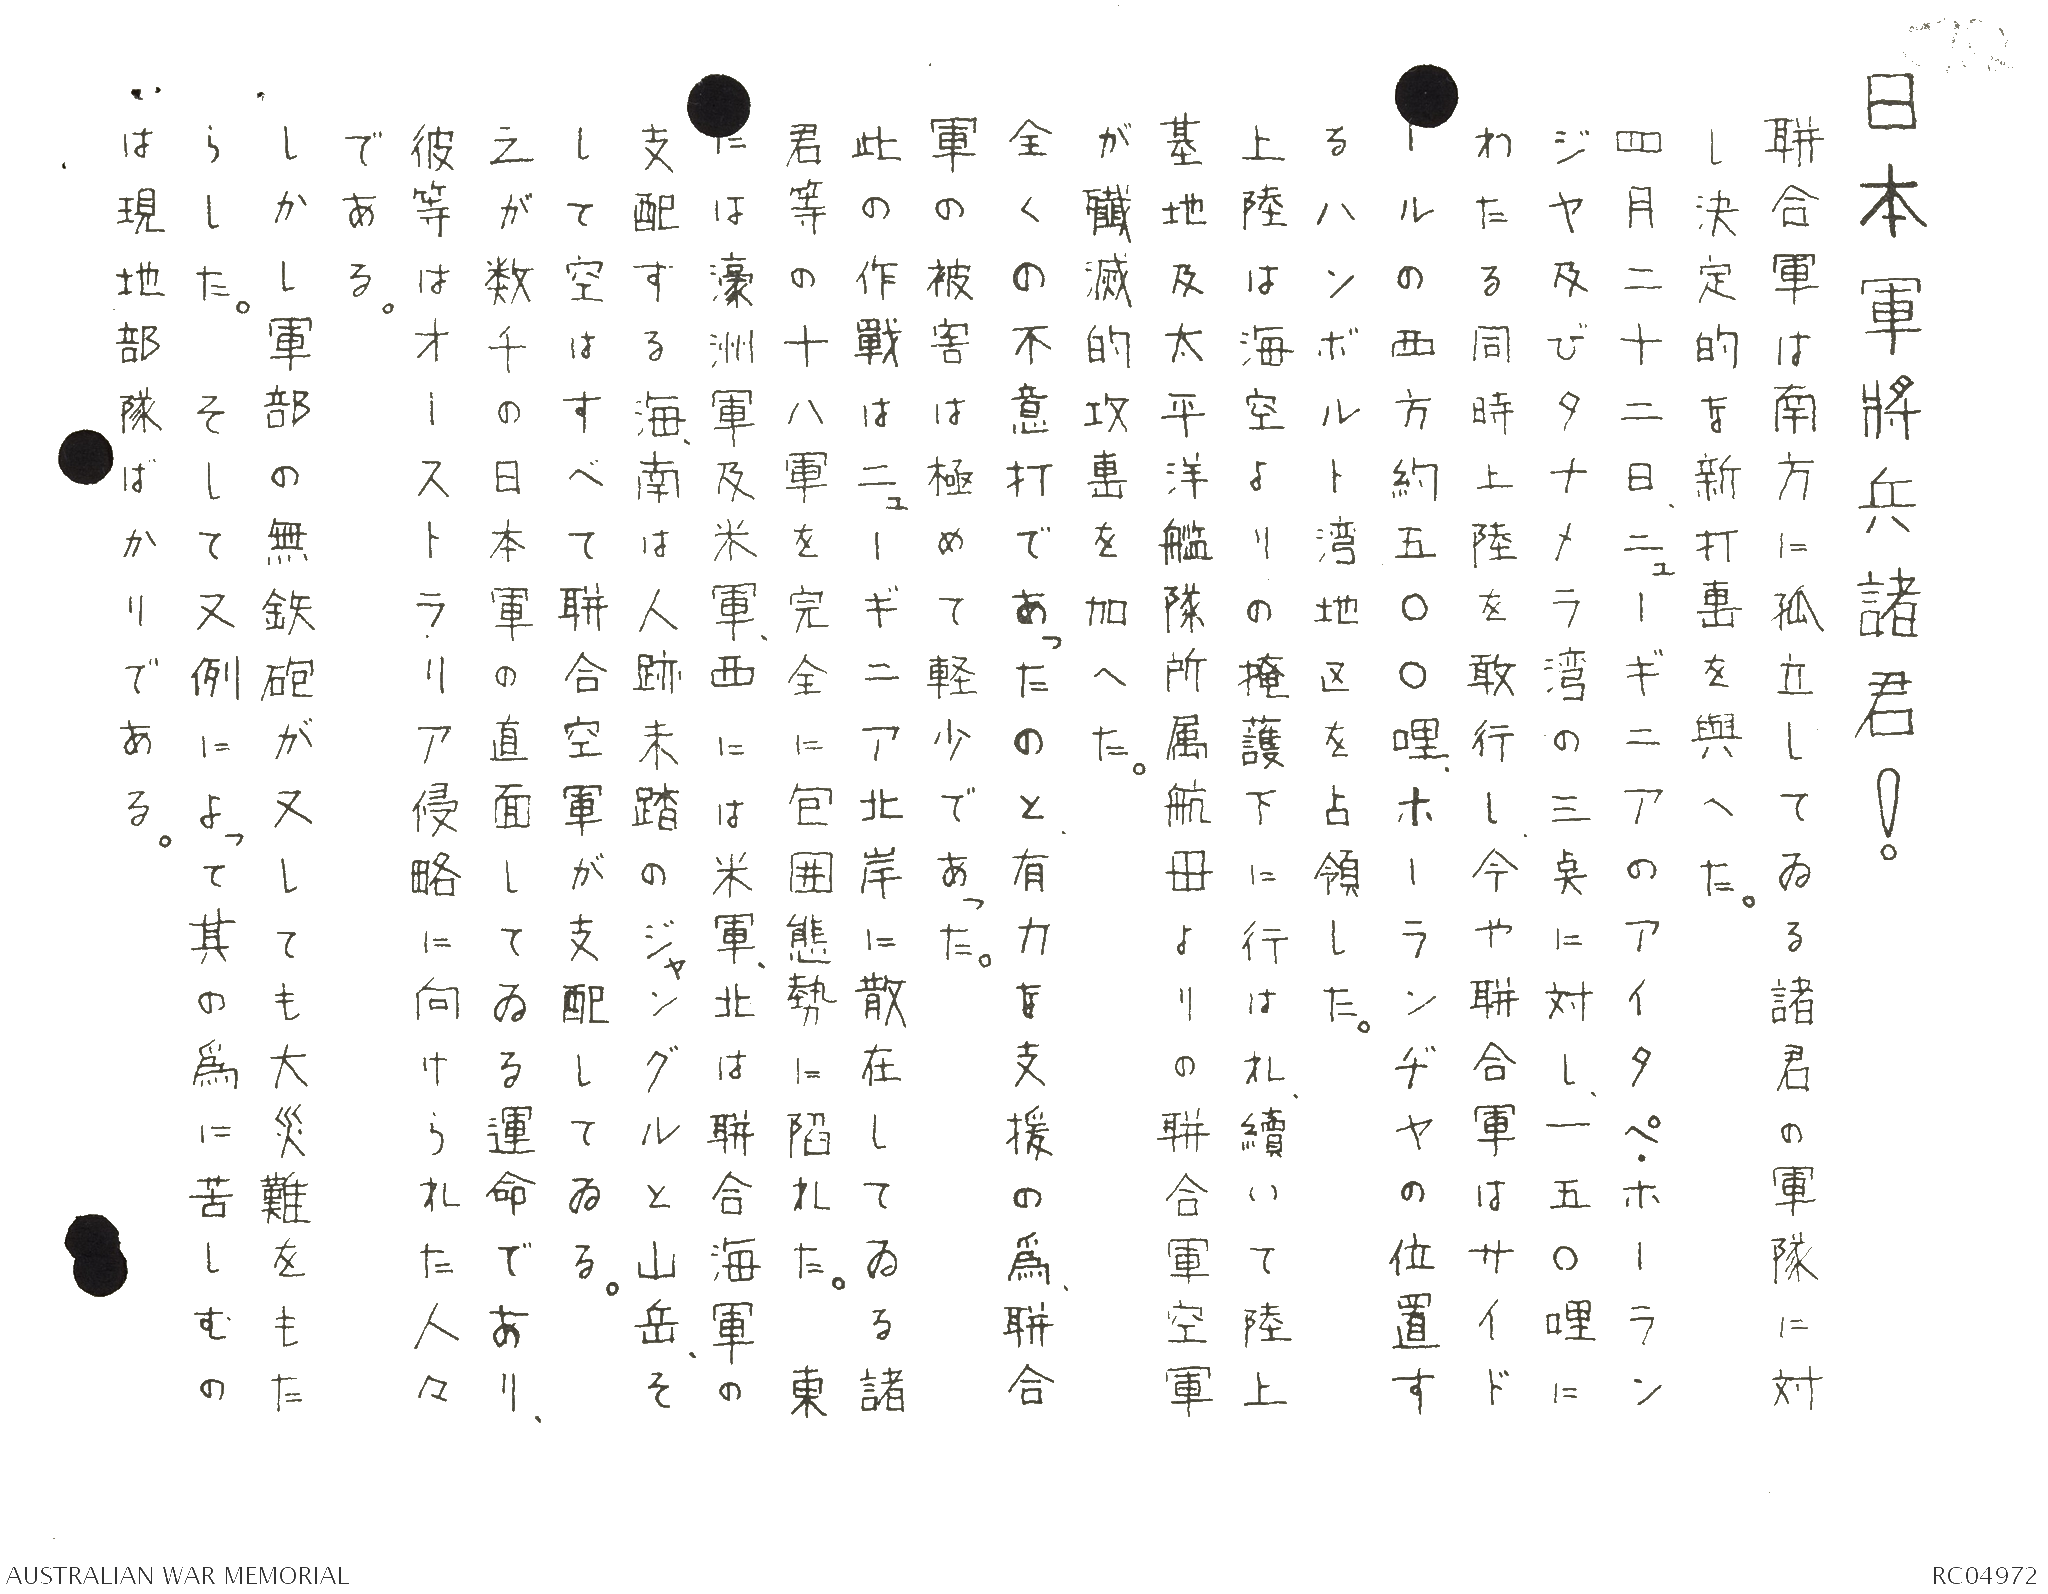 日本軍將兵諸君！
聯合軍は南方に孤立してゐる諸君の軍隊に対
し決定的な新打撃を與へた。
四月二十二日、ニューギニアのアイタペ・ホーラン
ジヤ及びタナメラ湾の三点に対し、一五〇哩に
わたる同時上陸を敢行し、今や聯合軍はサイド
ールの西方約五〇〇哩、ホーランヂヤの位置す
るハンボルト湾地区を占領した。
上陸は海空よりの掩護下に行はれ、續いて陸上
基地及太平洋艦隊所属航母よりの聯合軍空軍
が殲滅的攻撃を加へた。
全くの不意打であったのと、有力な支援の為、聯合
軍の被害は極めて軽少であった。
此の作戰はニューギニア北岸に散在してゐる諸
君等の十八軍を完全に包囲態勢に陷れた。　東
には濠洲軍及米軍、西には米軍、北は聯合海軍の
支配する海、南は人跡未踏のジャングルと山岳、そ
して空はすべて聯合空軍が支配してゐる。
之が数千の日本軍の直面してゐる運命であり、
彼等はオーストラリア侵略に向けられた人々
である。
しかし軍部の無鉄砲が又しても大災難をもた
らした。　そして又例によって其の為に苦しむの
は現地部隊ばかりである。
AUSTRALIAN WAR MEMORIAL
RC04972